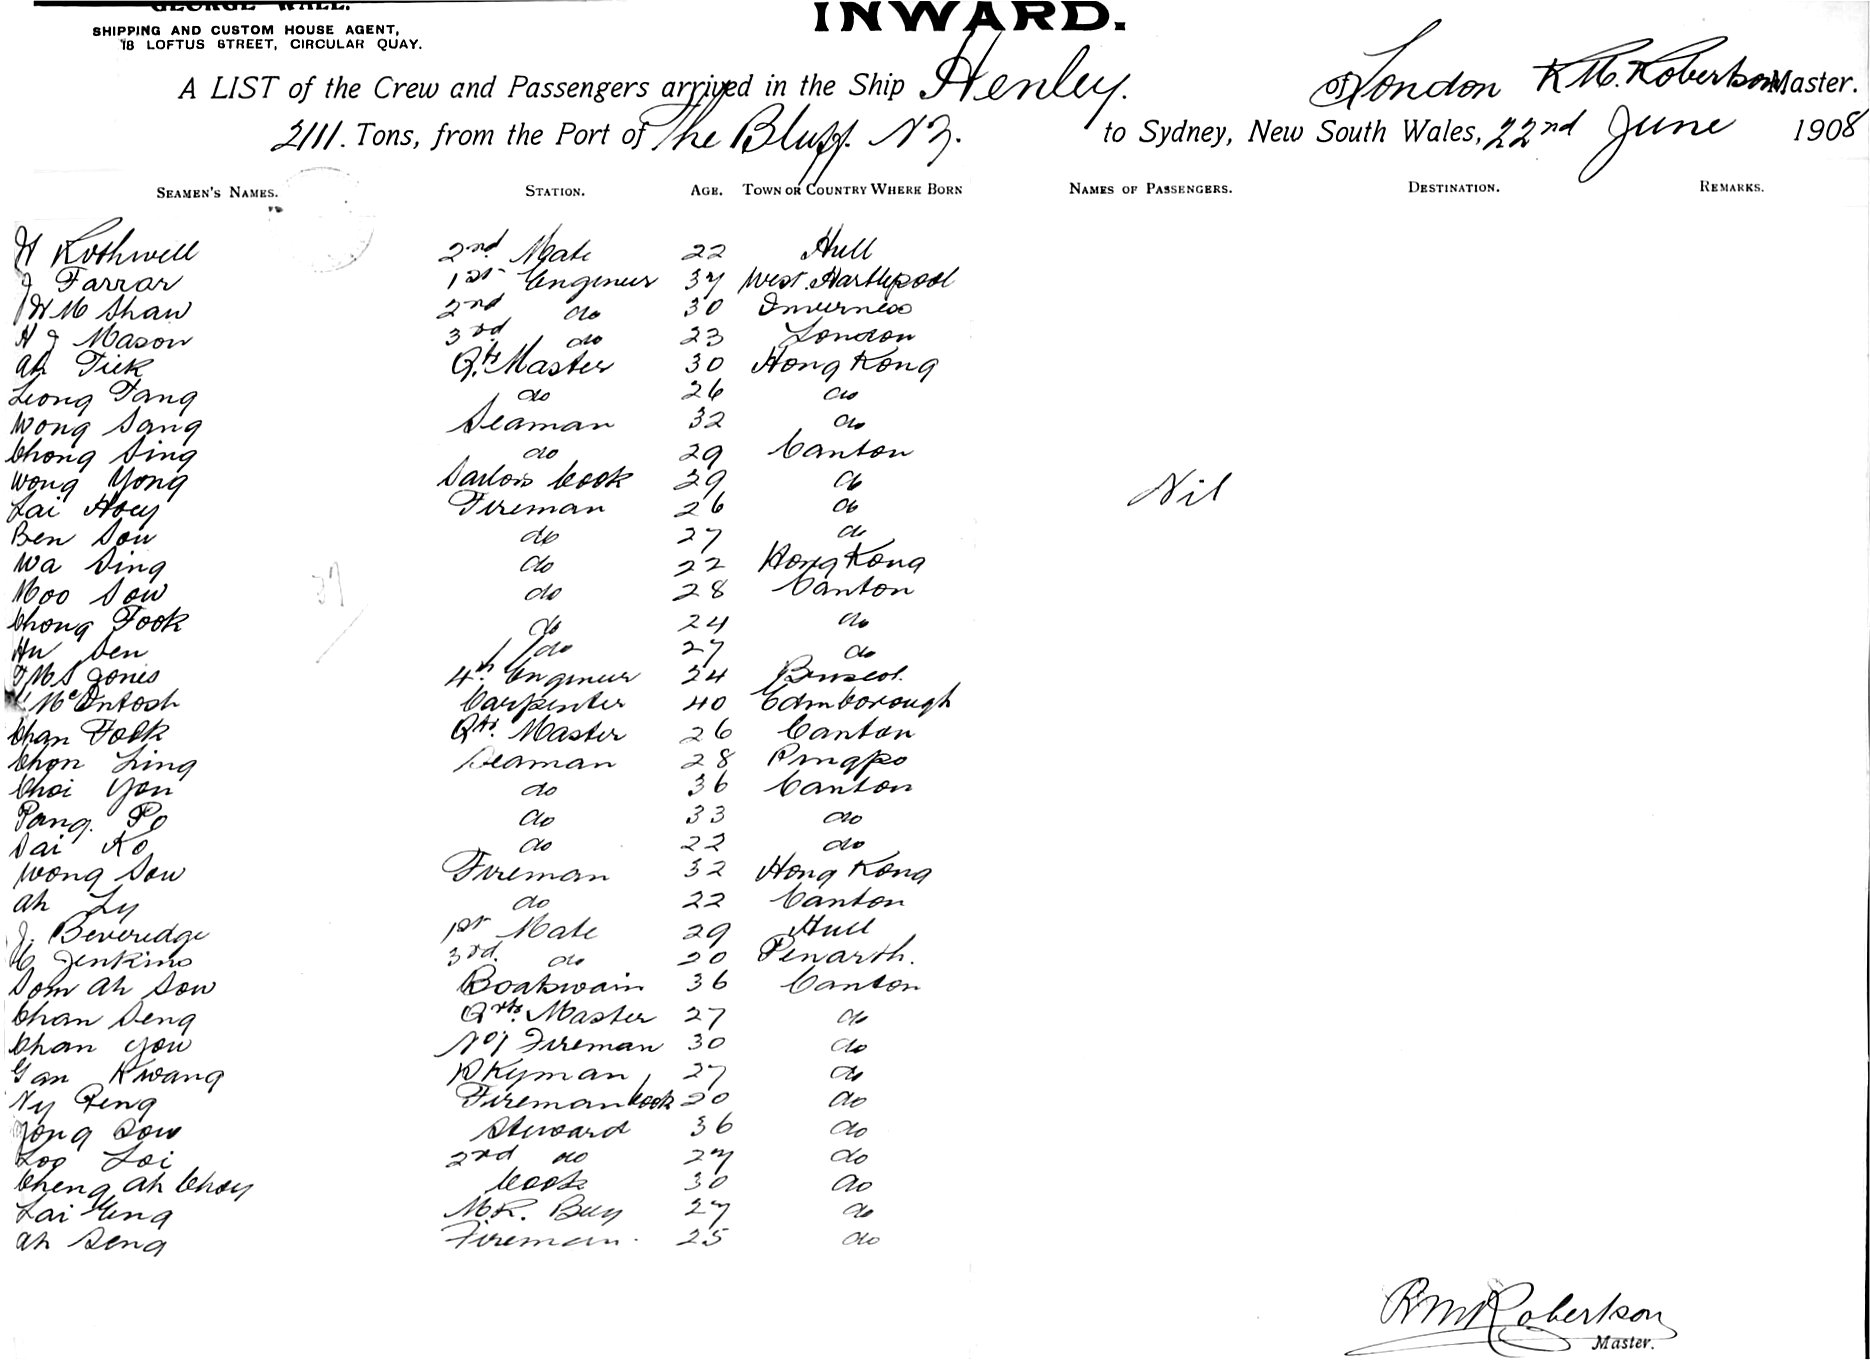 GEORGE WALL.
SHIPPING AND CUSTOM HOUSE AGENT,
18 LOFTUS STREET, CIRCULAR QUAY.
INWARD.
A LIST of the Crew and Passengers arrived in the Ship Henley. of London R M. Robertson Master.
2111. Tons, from the Port of The Bluff. N Z. to Sydney, New South Wales, 22nd June 1908
SEAMEN'S NAMES. STATION. AGE. TOWN OR COUNTRY WHERE BORN NAMES OF PASSENGERS. DESTINATION. REMARKS.
H Rothwell 2nd Mate 22 Hull
J Farrar 1st Engineer 37 West. Hartlepool
J W M Shaw 2nd do 30 Inverness
H J Mason 3rd do 23 London
Ah Tick Qr. Master 30 Hong Kong
Leong Fang do 26 do
Wong Sang Seaman 32 do
Chong Sing do 29 Canton
Wong Yong Sailors Cook 29 do
Lai Hoey Fireman 26 do
Nil
Ben Sow do 27 do
Wa Sing do 22 Hong Kong
Moo Sow do 28 Canton
Chong Fook do 24 do
Hu Sen do 27 do
37
J M S Jones 4th Engineer 24 Bristol.
McIntosh Carpenter 40 Edinborough
Chan Fook Qtr. Master 26 Canton
Chon Ling Seaman 28 Ringpo
Choi Yon do 36 Canton
Pang. Po do 33 do
Sai Ko do 22 do
Wong Sow Fireman 32 Hong Kong
Ah Ly do 22 Canton
J. Beveredge 1st Mate 29 Hull
C Jenkins 3rd. do 20 Penarth.
Som Ah Sow Boatswain 36 Canton
Chan Seng Qrtr. Master 27 do
Chan You No 1 Fireman 30 do
Gan Kwang Dkyman 27 do
Ny Peng Fireman Cook 20 do
Yong Sow Steward 36 do
Loo Loi 2nd do 27 do
Cheng Ah Choy Cook 30 do
Lai Yeng M R. Boy 27 do
Ah Seng Fireman. 25 do
R M Robertson
Master.